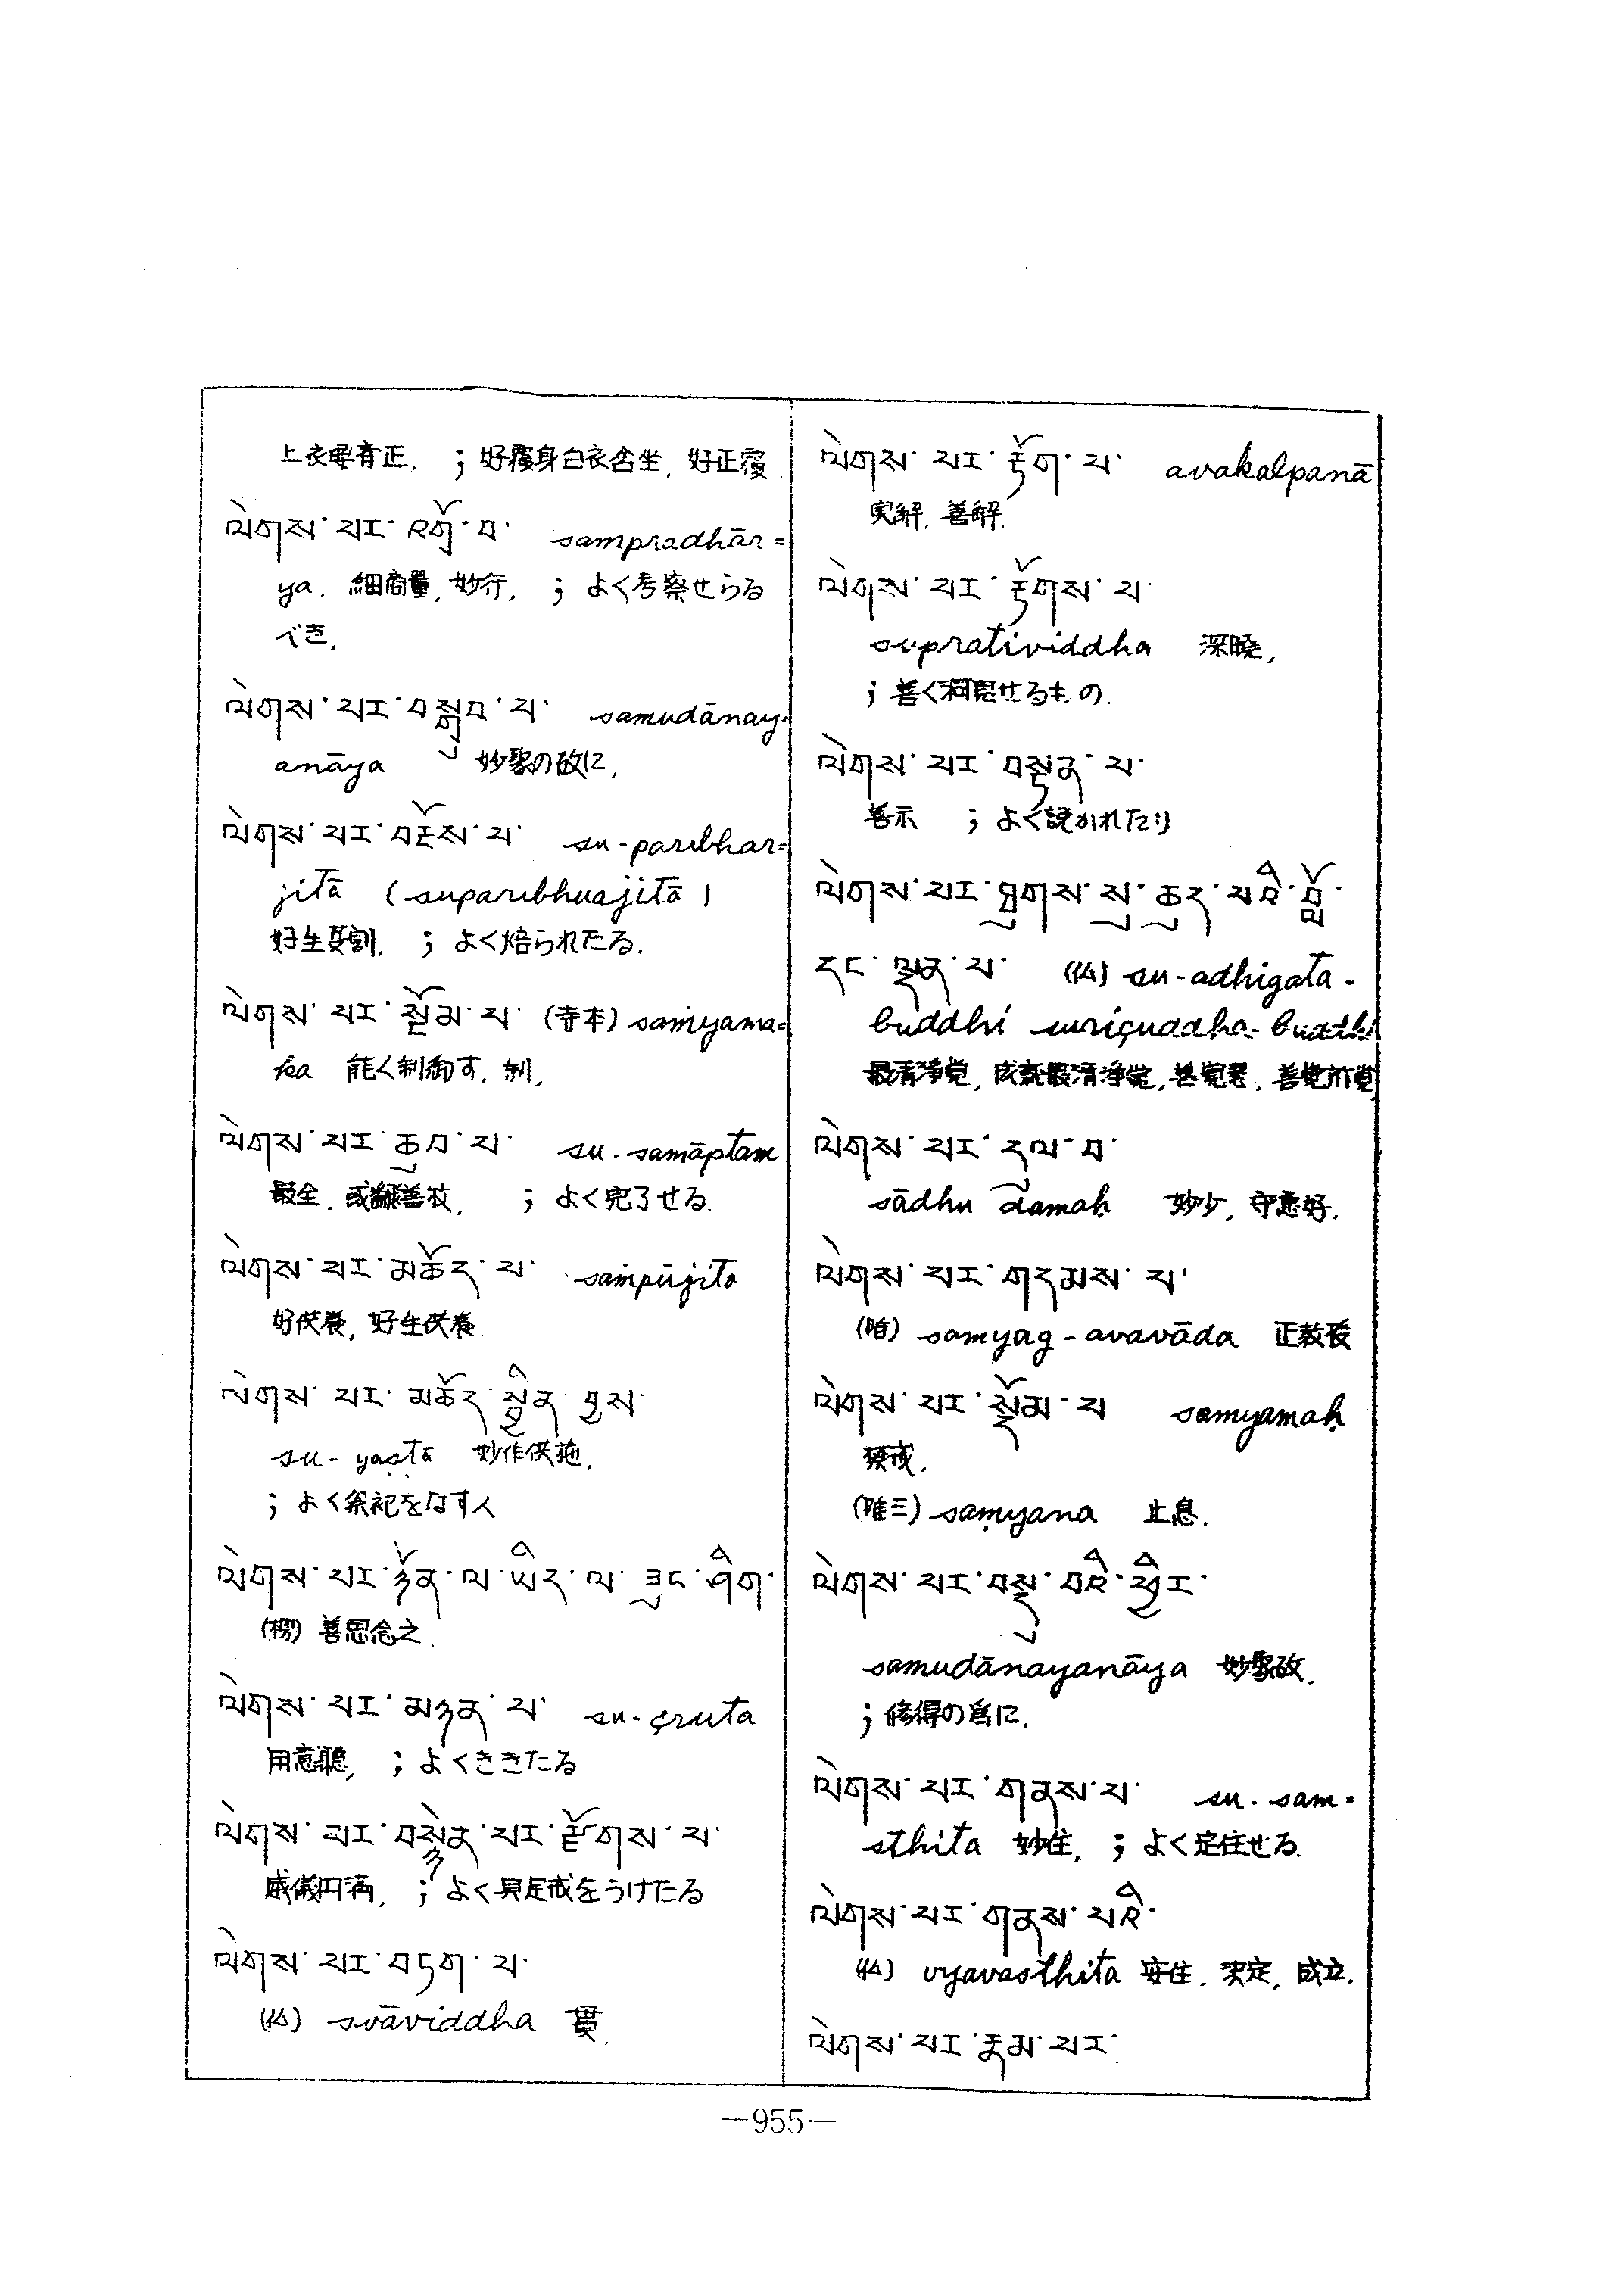 上衣 正. ; 好覆身白衣舎坐, 好正覆.
ལེགས་པར་འགྲོ་བ་ sampradhār=
ya. 細商量, 妙行, ; よく考察せらる
べき,
ལེགས་པར་བསྒྲུབ་པ་ samudānay-
anāya 妙聚の故に,
ལེགས་པར་བརྔོས་པ་ su-paribhar=
jitā (suparibhuajitā)
好生 割. ; よく焙られたる.
ལེགས་པར་སྡོམ་པ་ (寺本) saṁyama=
ka 能く制御す, 制,
ལེགས་པར་ཚུབ་པ་ su-samāptam
最全, 善 , ; よく完了せる.
ལེགས་པར་མཆོད་པ་ saṁpūjita
好供養, 好生供養.
ལེགས་པར་མཆོད་སྦྱིན་བྱས་
su-yaṣṭā 妙作供施,
; よく祭祀をなす人
ལེགས་པར་ཉོན་ལ་ཡིད་ལ་ཟུང་ཤིག་
(楞) 善思念之.
ལེགས་པར་མཉན་པ་ su-çruta
用意聽, ; よくききたる
ལེགས་པར་བསྙེན་པར་རྫོགས་པ་
威儀円満, ; よく具足戒をうけたる
ལེགས་པར་བཏག་པ་
(仏) svāviddha 貫.
ལེགས་པར་རྟོག་པ་ avakalpanā
実解, 善解.
ལེགས་པར་རྟོགས་པ་
supratividdha 深曉,
; 善く洞見せるもの.
ལེགས་པར་བསྟན་པ་
善示 ; よく説かれたり
ལེགས་པར་ཐུགས་སུ་ཆུད་པའི་བློ་
དང་ལྡན་པ་ (仏) su-adhigata-
buddhi suviçuddha-buddhi
最清浄覚, 成就最清浄覚, 善覚 , 善覚所覚,
ལེགས་པར་དུལ་བ་
sādhu damaḥ 妙少, 守意好.
ལེགས་པར་གདམས་པ་
samyag-avavāda 正教授
ལེགས་པར་སྡོམ་པ saṁyamaḥ
禁戒.
(唯三) saṃyana 止息.
ལེགས་པར་བསྡུ་བའི་ཕྱིར་
samudānayanāya 妙聚故.
; 修得の為に.
ལེགས་པར་གནས་པ་ su-sam=
sthita 妙住, ; よく定住せる.
ལེགས་པར་གནས་པའི་
(仏) vyavasthita 安住, 決定, 成立.
ལེགས་པར་རྣམ་པར་
—955—